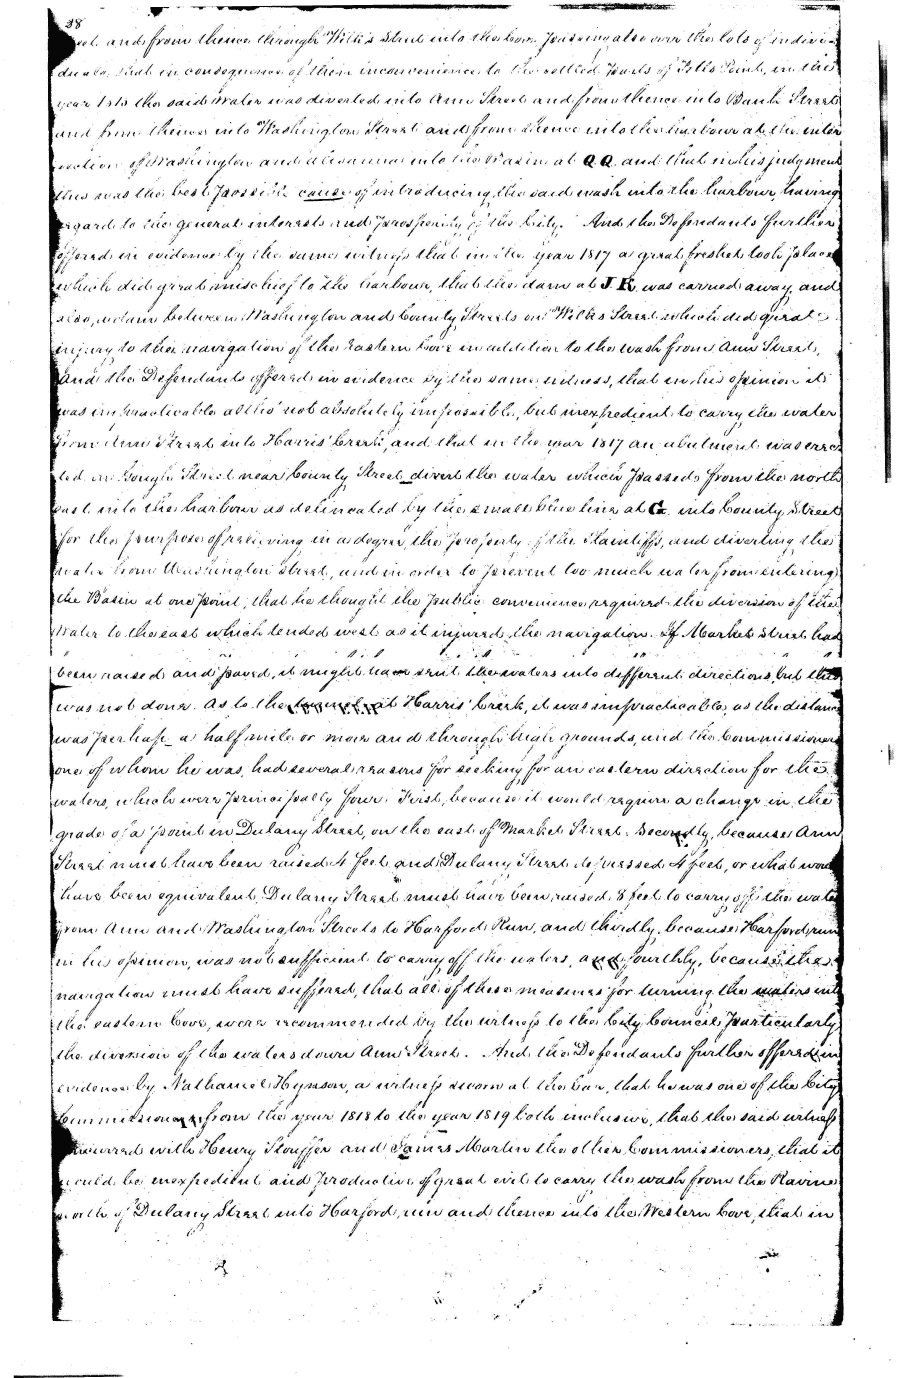 38
and from thence through Wilk's Street into the Cove, passing also over the lots of indivi-
duals, that in consequence of their inconvenience to the settled parts of Fells Point, in the
year 1815 the said water was diverted into Ann Street and from thence into Bank Street
and from thence into Washington Street and from thence into the harbour at the inter
section of Washington and Alesanna into the Basin at Q Q. and that in his judgment
this was the best possible cause of introducing the said wash into the harbour, having
regard to the general interests and prosperity of the City. And the Defendants further
offered in evidence by the same witness that in the year 1817 a great freshet took place
which did great mischief to the harbour, that the dam at J K was carried away, and
also, a dam between Washington and County Streets on Wilks Street which did great
injury to the navigation of the Eastern Cove in addition to the wash from Ann Street,
And the Defendants offered in evidence by the same witness, that in his opinion it
was impracticable altho' not absolutely impossible, but inexpedient to carry the water
from Ann Street into Harris' Creek, and that in the year 1817 an abutment was erec
ted in Gough Street near County Street divert the water which passed from the north
east into the harbour as delineated by the small blue line at G. into County Street
for the purpose of relieving in a degree, the property of the Plaintiffs, and diverting the
water from Washington Street, and in order to prevent too much water from entering
the Basin at one point, that he thought the public convenience required the diversion of the
Water to the east which tended west as it injured the navigation. If Market Street had
been raised and paved, it might have sent the waters into different directions, but this
was not done. As to the at Harris' Creek, it was impracticable, as the distance
was perhaps a half mile or more and through high grounds, and the Commissioners
one of whom he was, had several reasons for seeking for an eastern direction for the
waters, which were principally four. First, because it would require a change in the
grade of a point in Dulany Street, on the east of Market Street. Secondly, because Ann
Street must have been raised 4 feet and Dulany Street depressed 4 feet, or what would
have been equivalent, Dulany Street must have been raised 8 feet to carry off the water
from Ann and Washington Streets to Harford Run, and thirdly, because Harford run
in his opinion, was not sufficient to carry off the waters, and fourthly, because the
navigation must have suffered, that all of these measures for turning the waters into
the eastern Cove, were recommended by the witness to the City Council, particularly
the diversion of the waters down Ann Street. And the Defendants further offered in
evidence by Nathaniel Hynson, a witness sworn at the bar, that he was one of the City
Commissioners from the year 1818 to the year 1819 both inclusive, that the said witness
concurred with Henry Stouffer and James Martin the other Commissioners, that it
would be inexpedient and productive of great evil to carry the wash from the Ravine
north of Dulany Street into Harford run and thence into the Western Cove, that in